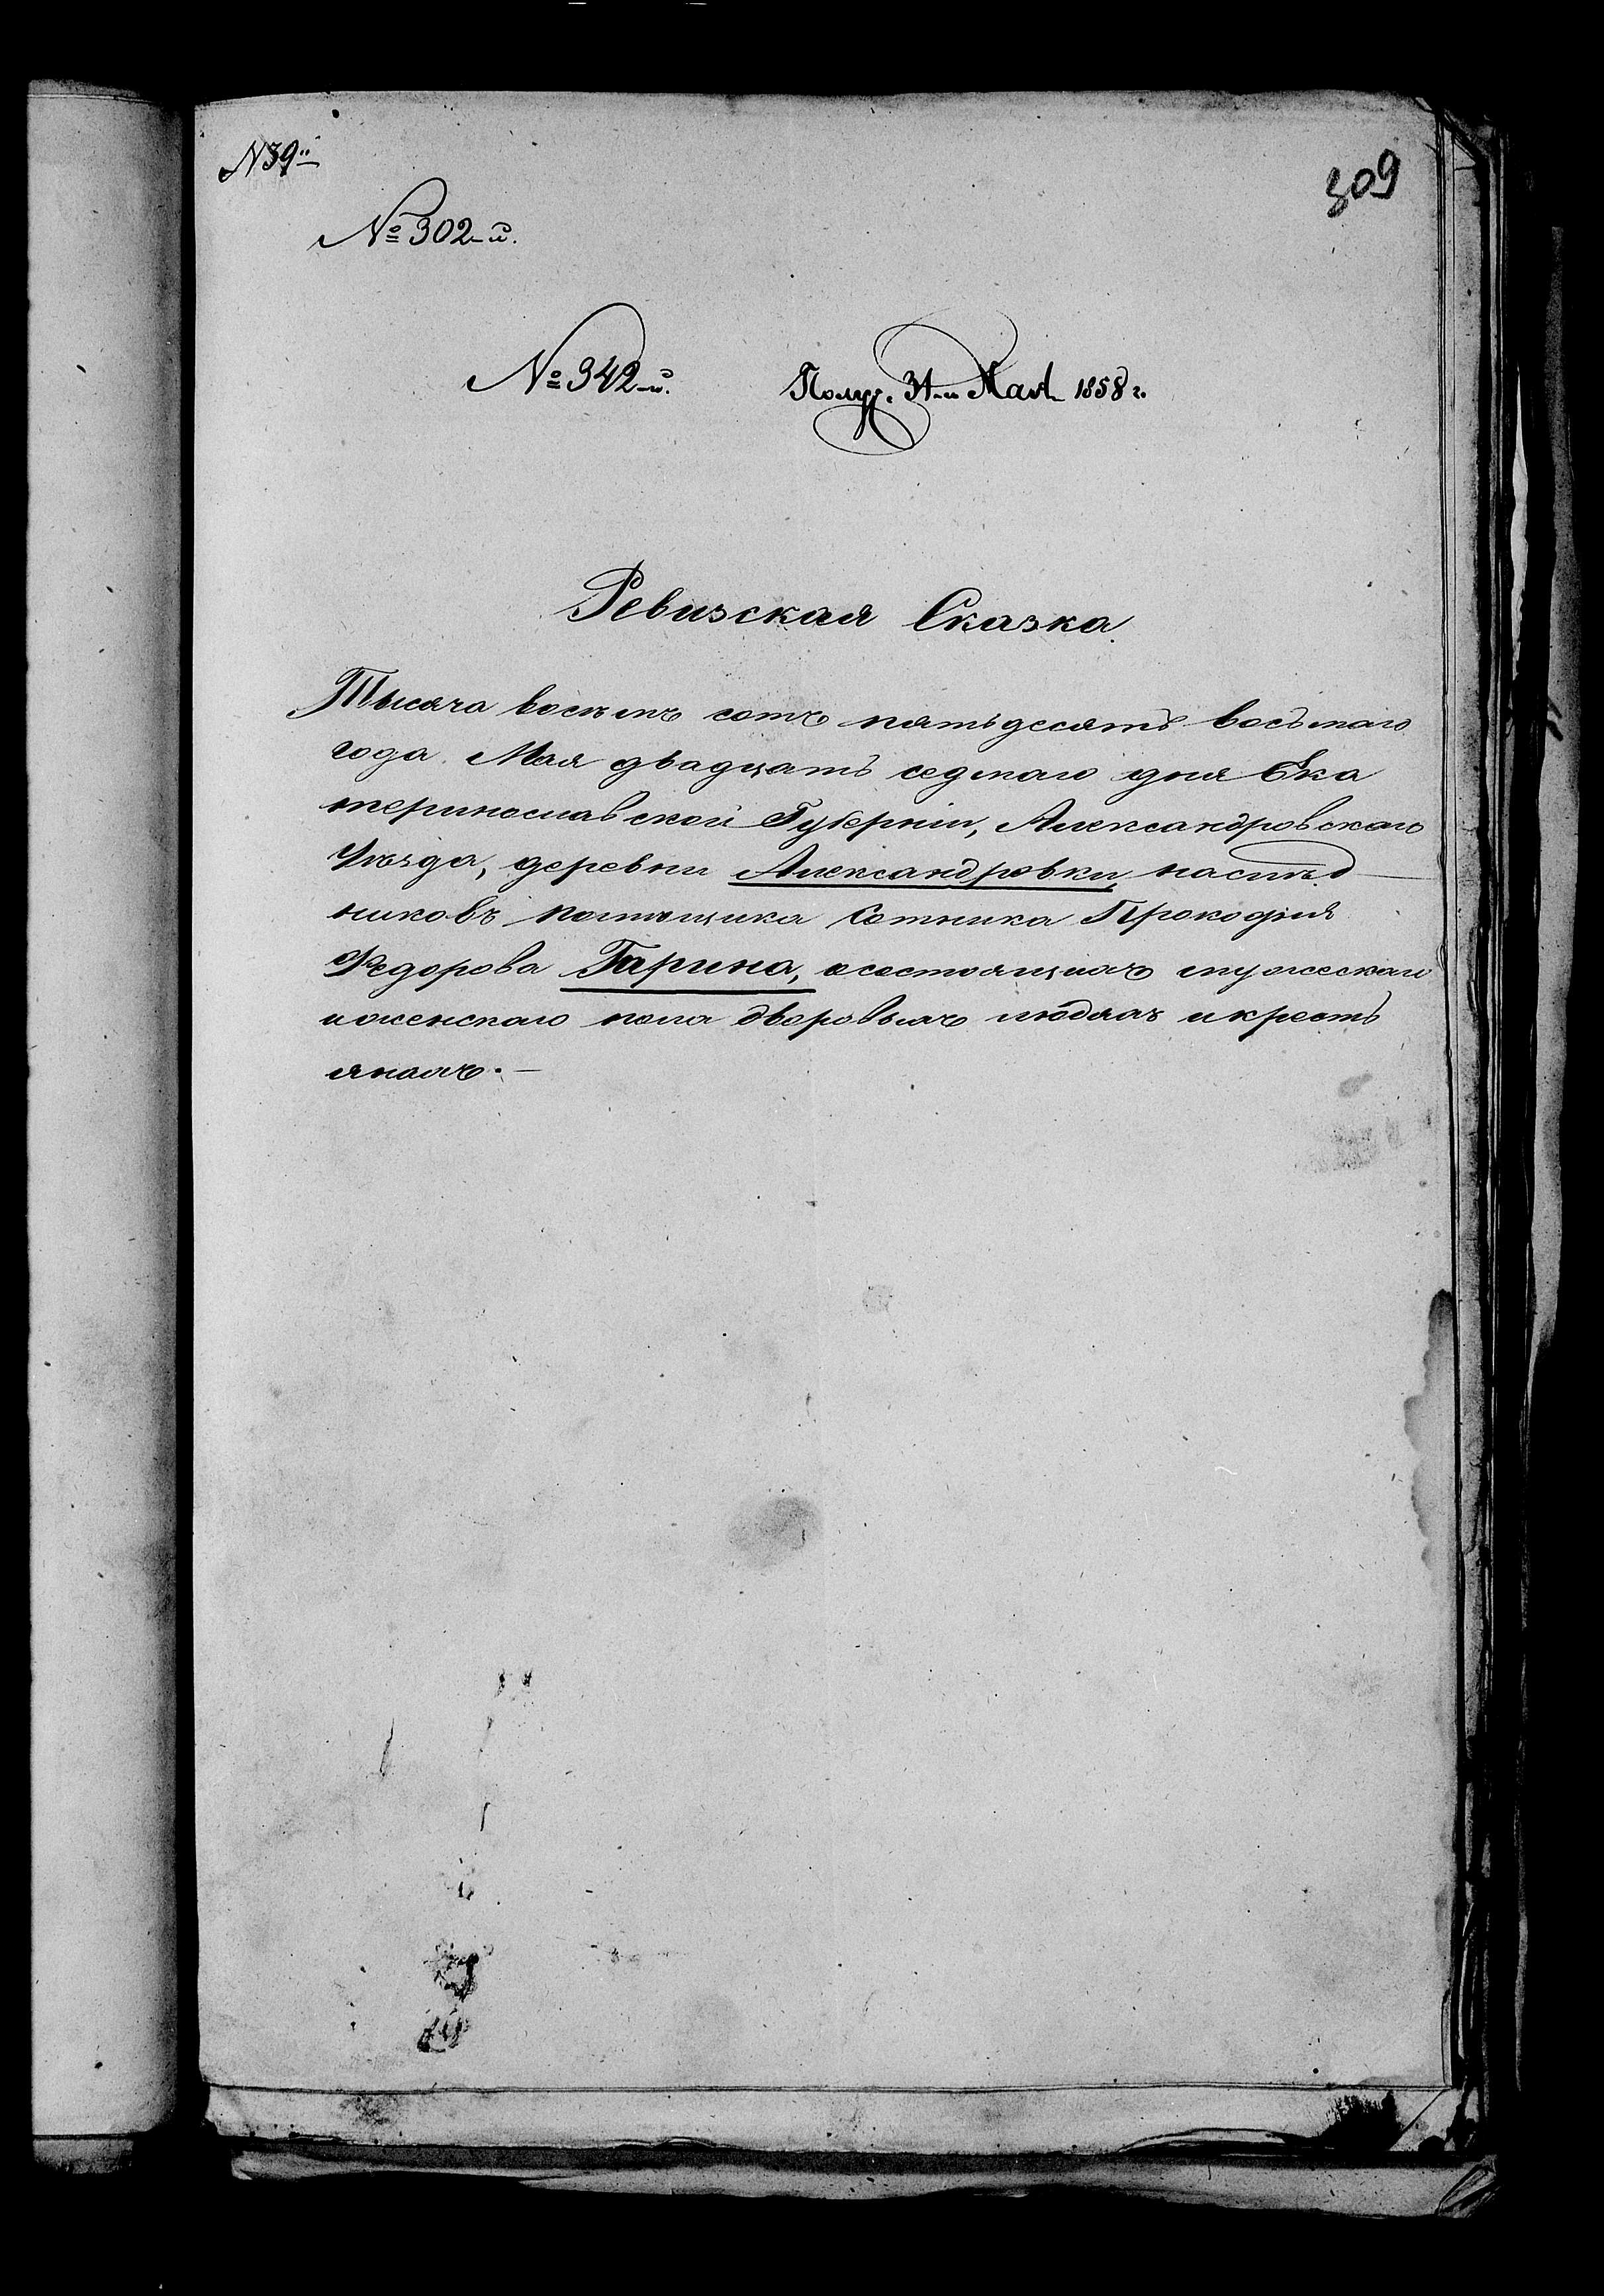 N 39й
309
№ 302-й.
№ 342-й. Получ. 31-го Мая 1858 г.
Ревизская Сказка
Тысяча восемь сотъ пятьдесятъ восьмаго
года Мая двадцать седмаго дня Ека
теринославской Губерніи, Александровскаго
Уѣзда, деревни Александровки, наслѣд
никовъ помѣщика Сотника Прокофія
Федорова Гарина, о состоящихъ мужескаго
и женскаго пола дворовыхъ людяхъ и кресть
янахъ. —